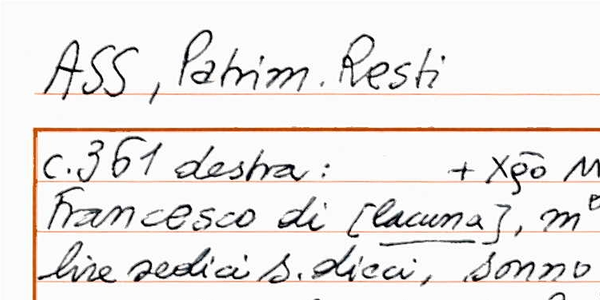 ASS, Patrim. Resti
c. 361 destra: + Xp̄o M
Francesco di [lacuna], m
lire sedici s. dieci, sonno